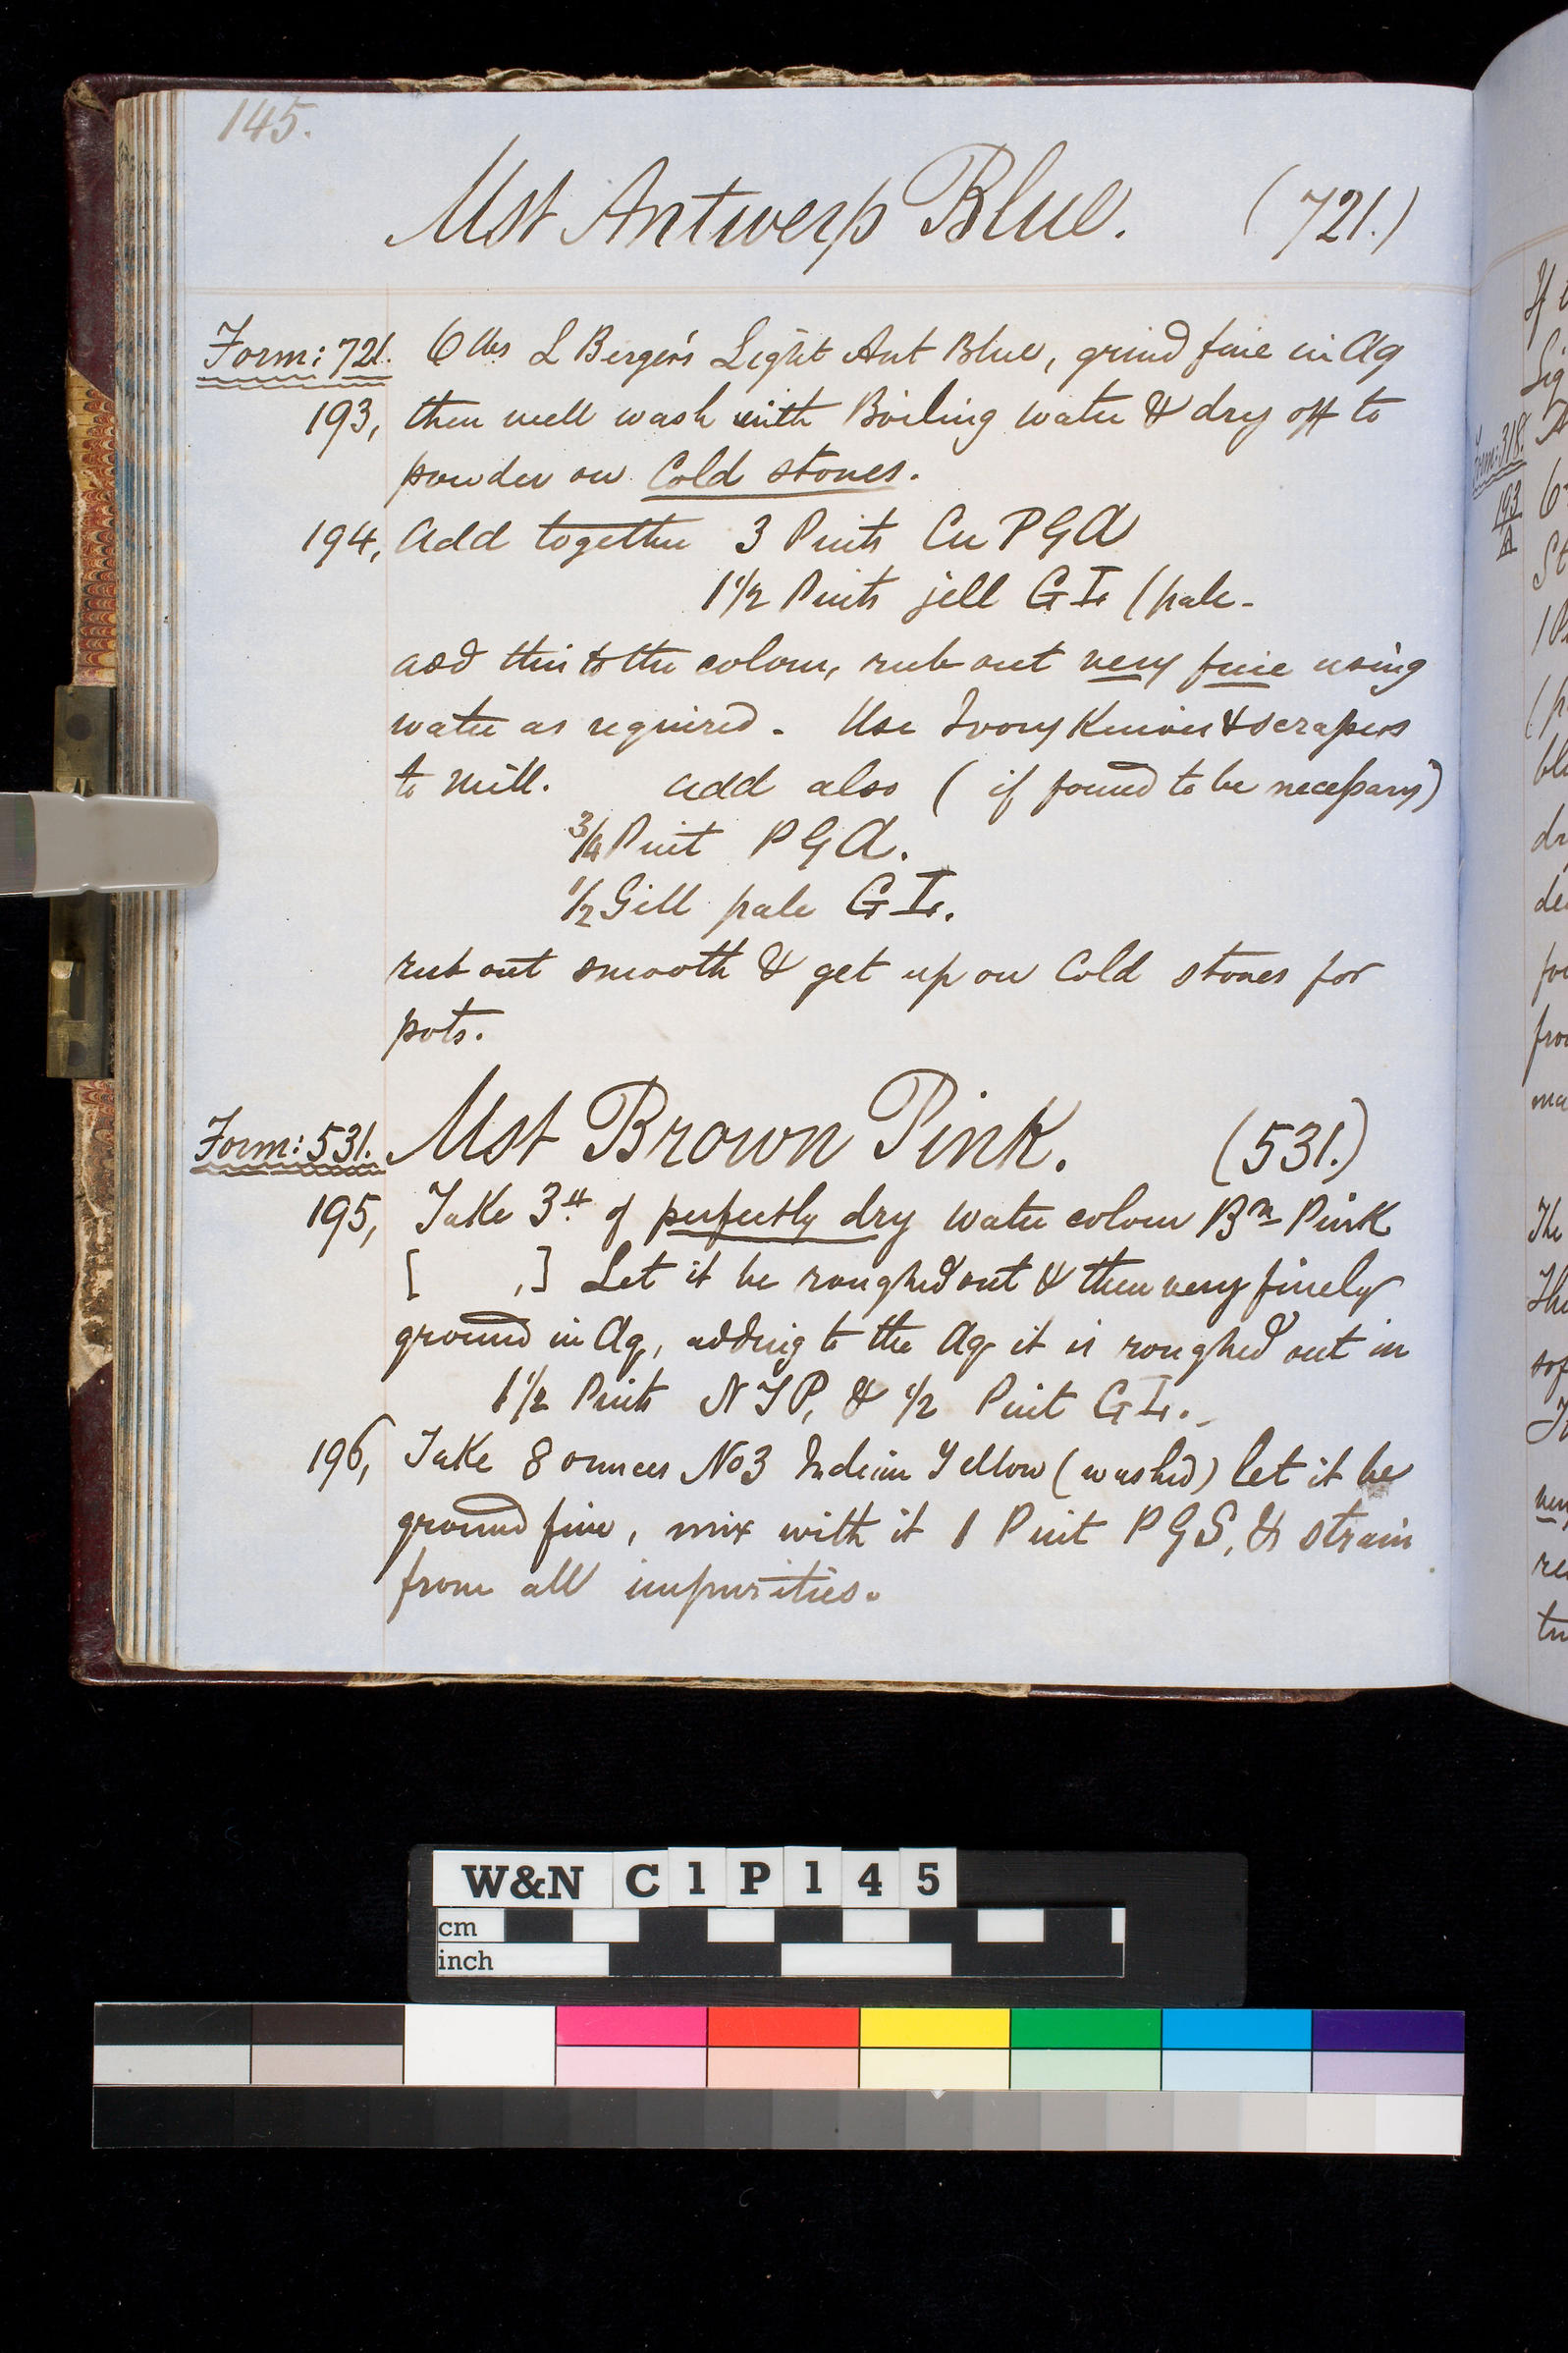 145.
Mst Antwerp Blue. (721.)
Form: 721. 6 lbs L Berger's Light Ant Blue, grind fine in Aq
193, then well wash with Boiling water & dry off to
powder on Cold stones.
194, Add together 3 Pints Cu PGA
1 1/2 Pints jell GL (pale-
add this to the colour, rub out very fine using
water as required. Use Ivory Knives & scrapers
to Mill. add also ( if found to be necessary)
3/4 Pint PGA.
1/2 Gill pale GL.
rub out smooth & get up on Cold stones for
pots.
Form: 531. Mst Brown Pink. (531.)
195, Take 3 of perfectly dry water colour Bn Pink
[ ,] Let it be roughed out & then very finely
ground in Aq, adding to the Aq it is roughed out in
1 1/2 Pints NTP, & 1/2 Pint GL.
196, Take 8 ounces No 3 Indian Yellow (washed) let it be
ground fine, mix with it 1 Pint PGS, & strain
from all impurities.
Form: 318.
193
A
W&N C1P145
cm
inch